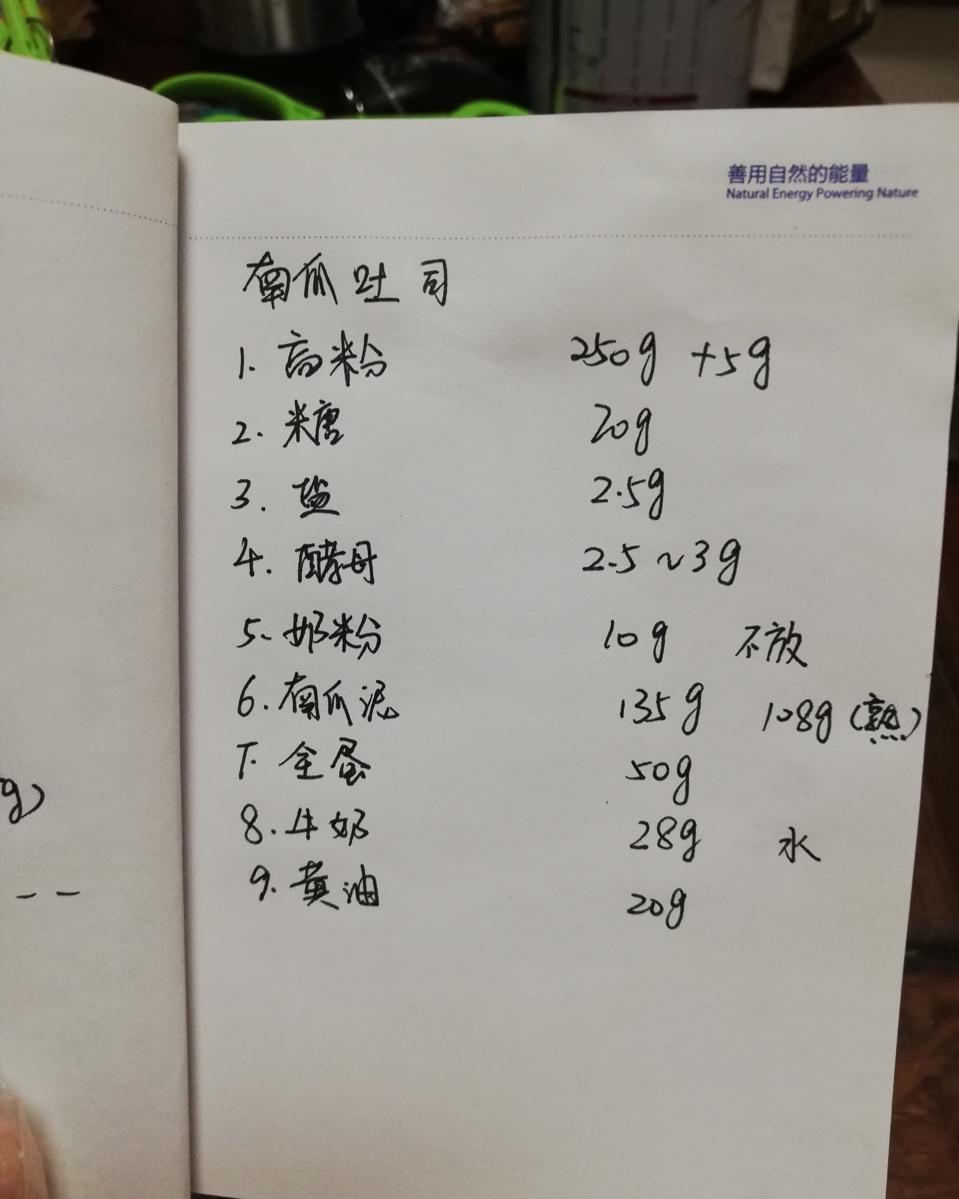 善用自然的能量
Natural Energy Powering Nature
南瓜吐司
1. 高粉 250g +5g
2. 米唐 20g
3. 盐 2.5g
4. 酵母 2.5~3g
5. 奶粉 10g 不放
6. 南瓜泥 135g 108g(熟)
7. 全蛋 50g
8. 牛奶 28g 水
9. 黄油 20g
g)